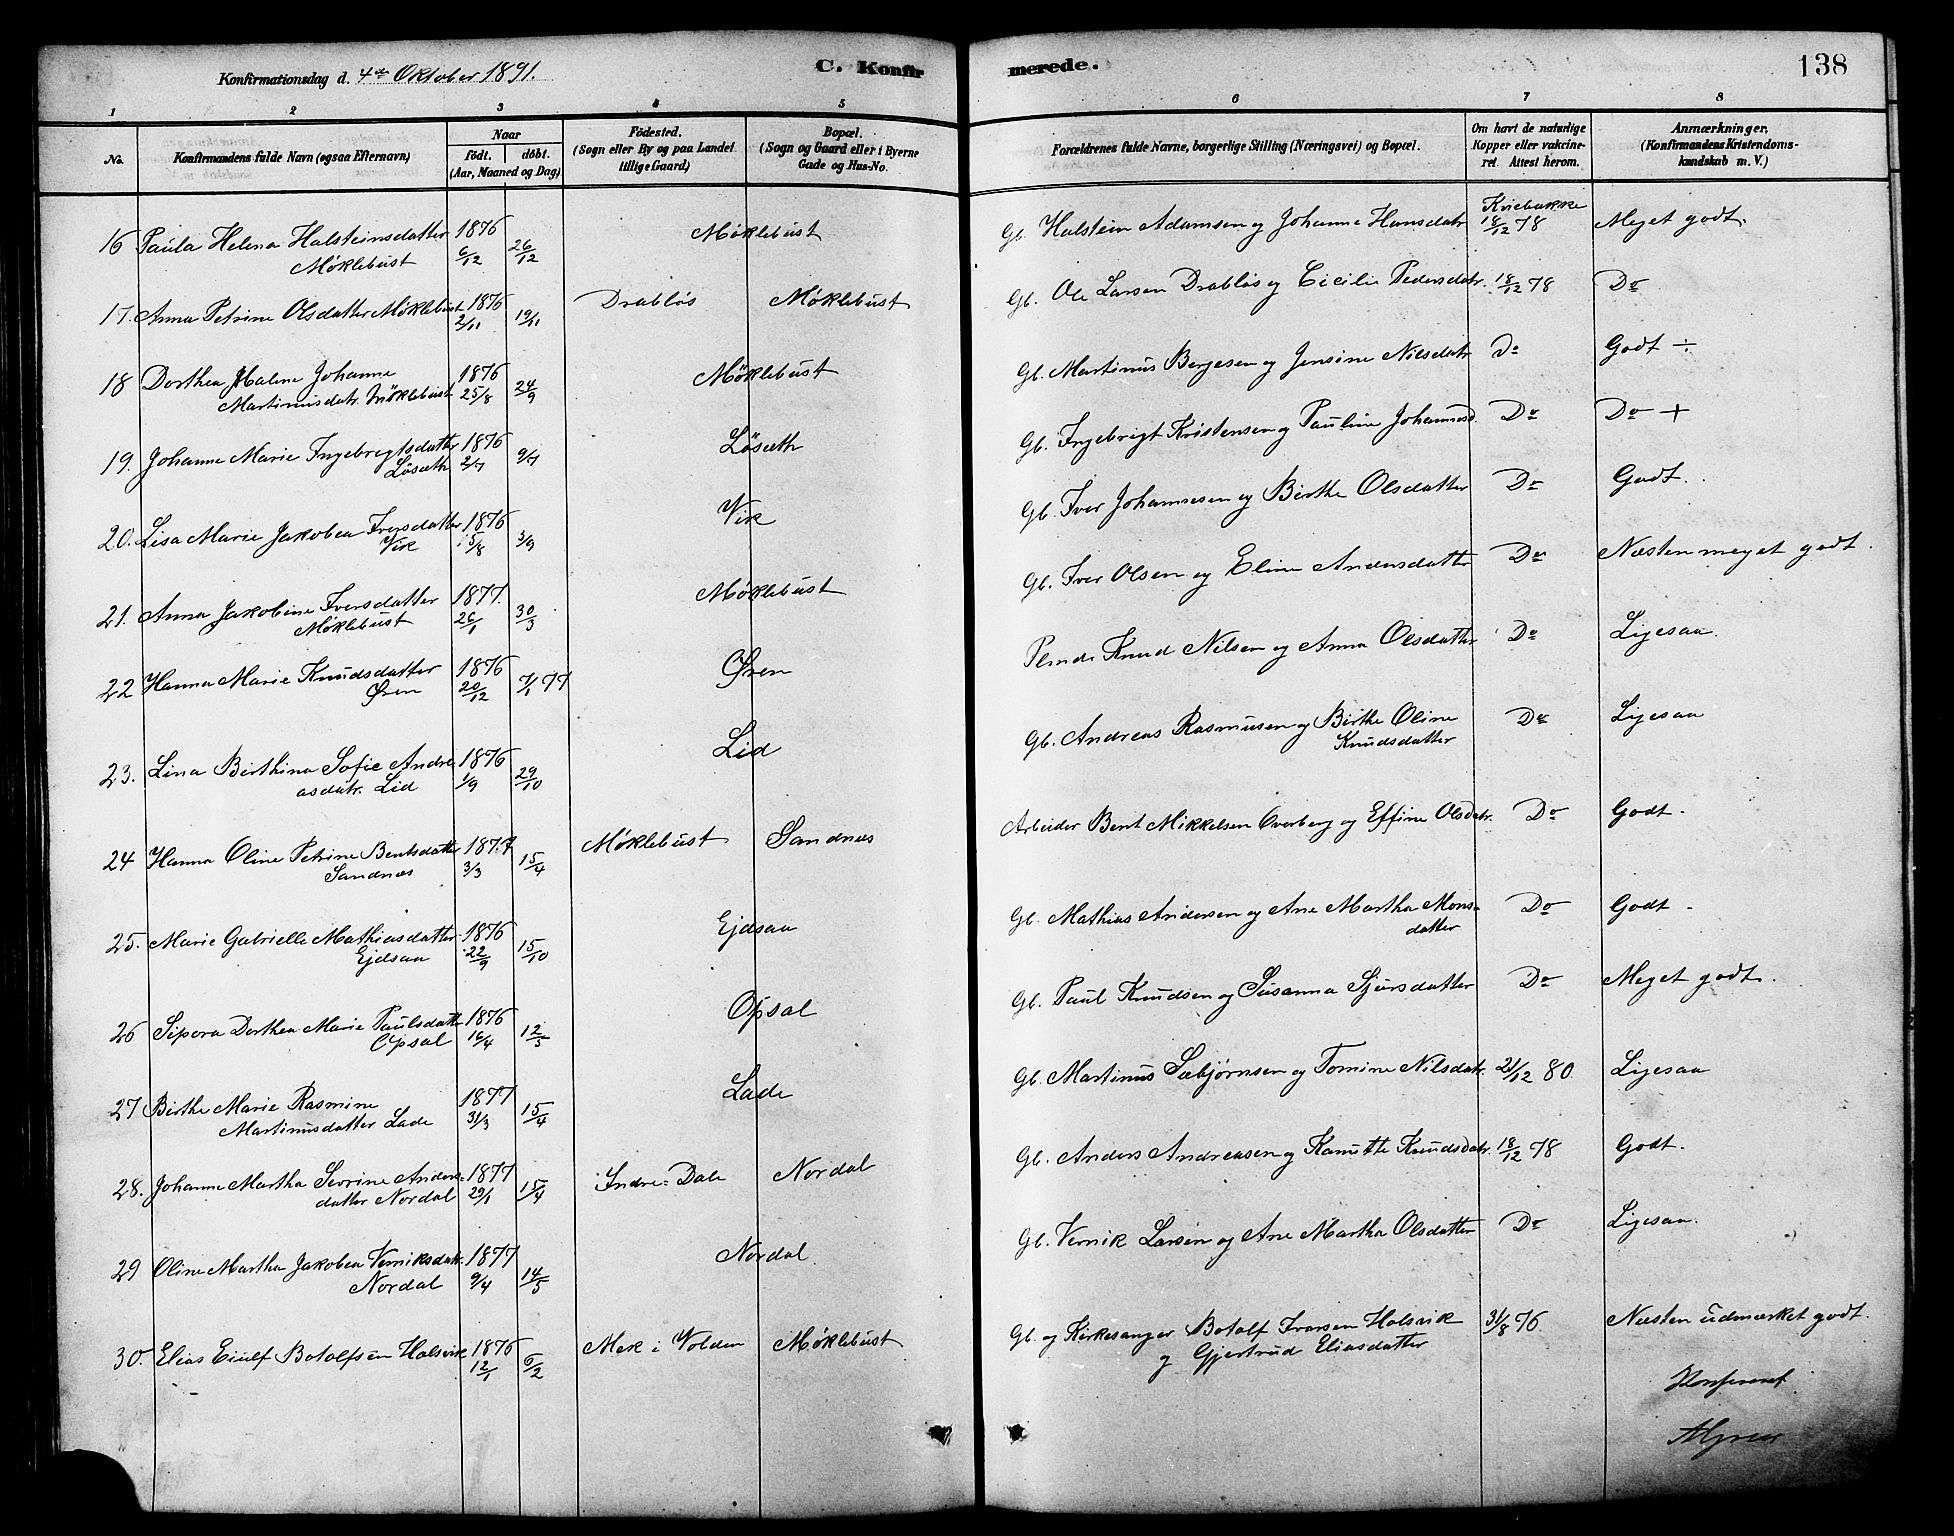 Konfirmationsdag d. 4de Oktober 1891.
C. Konfirmerede.
138
1 2 3 4 5 6 7 8
No.
Konfirmandens fulde Navn (ogsaa Efternavn)
Naar
födt. döbt.
(Aar, Maaned og Dag)
Födested.
(Sogn eller By og paa Landet
tillige Gaard)
Bopæl.
(Sogn og Gaard eller i Byerne
Gade og Hus-No.
Forældrenes fulde Navne, borgerlige Stilling (Næringsvei) og Bopæl.
Om havt de naturlige
Kopper eller vakcine-
ret. Attest herom.
Anmærkninger.
(Konfirmandens Kristendoms-
kundskab m. V.)
16 Paula Helena Halsteinsdatter 1876 Møklebust Gb. Halstein Adamsen og Johanne Hansdatr Kviebakke 18/12 78 Meget godt.
Møklebust 6/12 26/12
17. Anna Petrine Olsdatter Møklebust 1876 2/11 19/11 Drabløs Møklebust Gb. Ole Larsen Drabløs og Cicilie Pedersdatr. 18/12 78 Do
18 Dorthea Halene Johanne 1876 Møklebust Gb. Martinus Bergesen og Jensine Nilsdatr Do Godt ÷
Martinusdatr. Møklebust 25/8 24/9
19. Johanne Marie Ingebregtsdatter 1876 Løseth Gb. Ingebrigt Kristensen og Pauline Johannesd. Do Do +
Løseth 2/7 9/7
20. Lisa Marie Jakobea Iversdatter 1876 Vik Gb. Iver Johannesen og Birthe Olsdatter Do Godt.
Vik 15/8 3/9
21. Anna Jakobine Iversdatter 1877. Møklebust Gb. Iver Olsen og Eline Andersdatter Do Næsten meget godt.
Møklebust 26/1 30/3
22 Hanna Marie Knudsdatter 1876 Øren Plmd. Knud Nilsen og Anna Olsdatter Do Ligesaa.
Øren 20/12 7/1 77
23. Lina Birthina Sofie Andre 1876 Lid Gb. Andreas Rasmusen og Birthe Oline Do Ligesaa
asdatr. Lid 1/9 29/10 Knudsdatter
24 Hanna Oline Petrine Bentsdatter 1877 Møklebust Sandnæs Arbeider Bent Mikkelsen Overberg og Effine Olsdatr. Do Godt.
Sandnæs 3/3 15/4
25. Marie Gabrielle Mathiasdatter 1876 Ejdsaa Gb. Mathias Andersen og Ane Martha Mons- Do Godt
Ejdsaa 22/9 15/10 datter
26 Sipora Dorthea Marie Paulsdatter 1876 Opsal Gb. Paul Knudsen og Susanna Sjursdatter Do Meget godt.
Opsal 16/4 12/5
27 Birthe Marie Rasmine 1877 Lade Gb. Martinus Sæbjørnsen og Tomine Nilsdatr. 21/12 80 Ligesaa
Martinusdatter Lade 31/3 15/4
28. Johanne Martha Sevrine Anders- 1877 Indre-Dale Nordal Gb. Anders Andreasen og Kanutte Knudsdatr. 18/12 78 Godt.
datter Nordal 29/1 15/4
29 Oline Martha Jakobea Verniksdatr. 1877 Nordal Gb. Vernik Larsen og Ane Martha Olsdatter Do Ligesaa.
Nordal 9/4 14/5
30. Elias Eiulf Botolfsen Halsvik 1876 Mek i Volden Møklebust Gb. og Kirkesanger Botolf Ivarsen Halsvik 31/8 76 Næsten udmærket godt.
12/1 6/2 og Gjertrud Eliasdatter
Konfereret